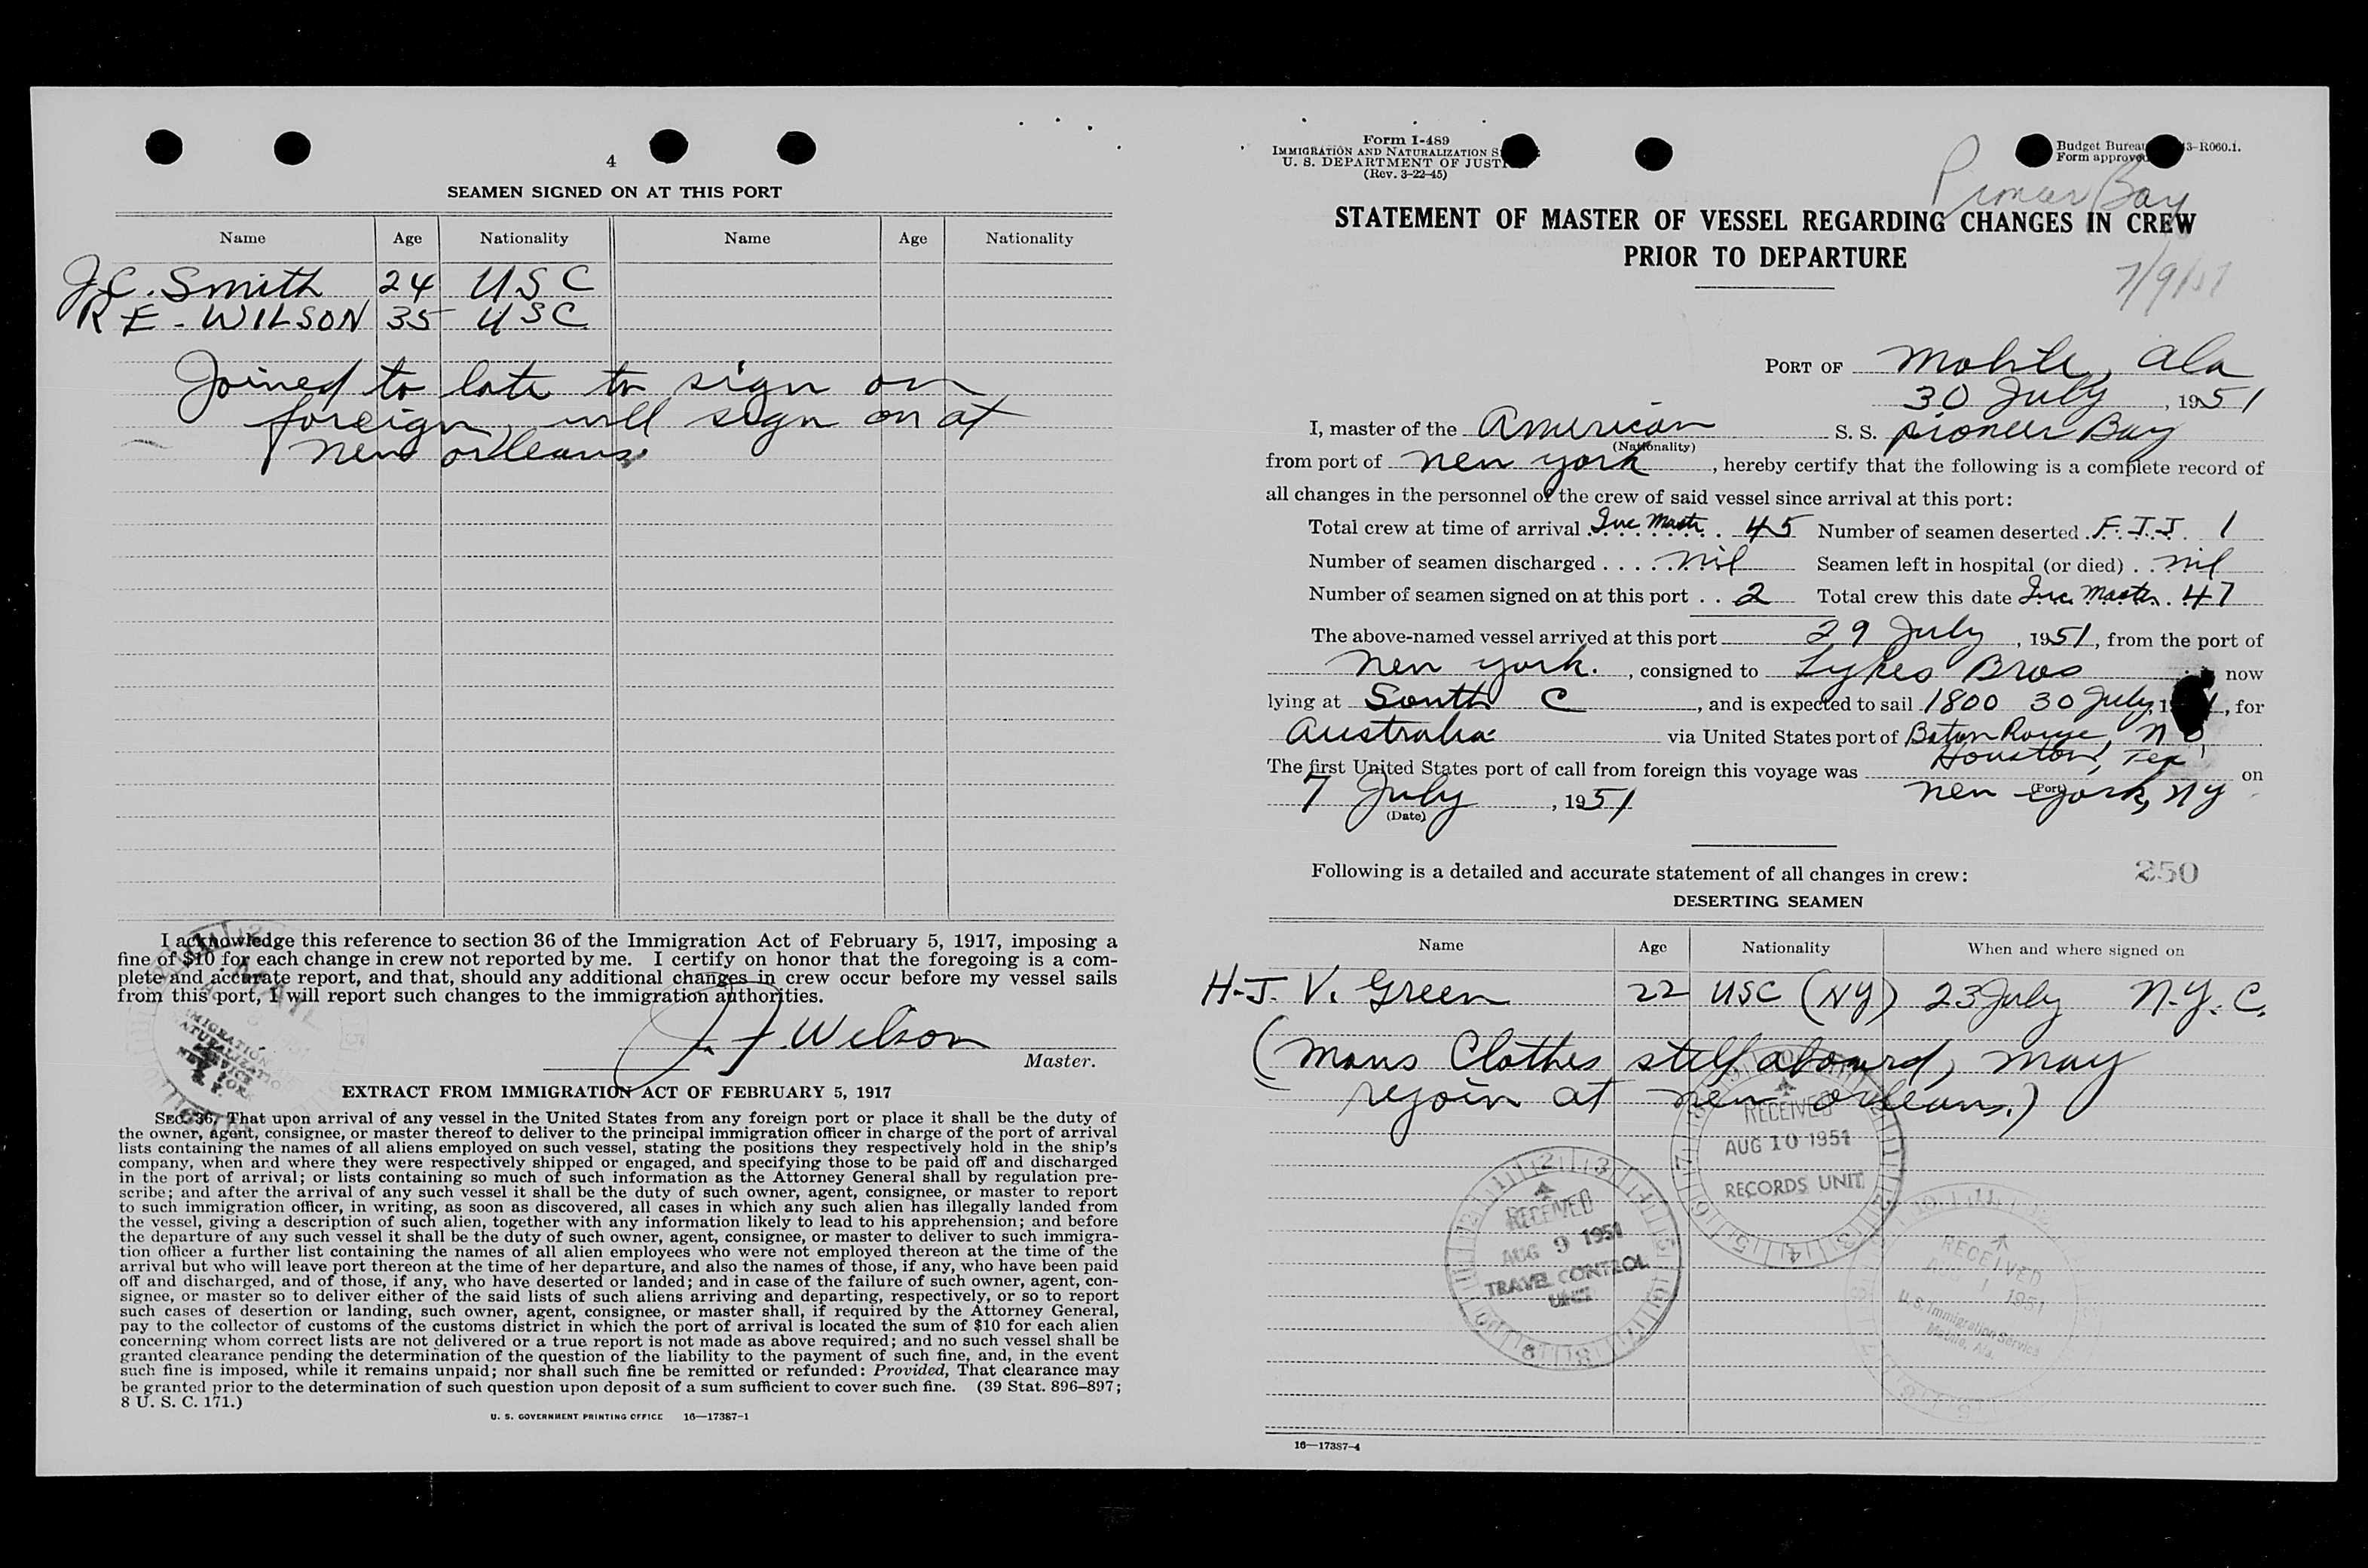 4
SEAMEN SIGNED ON AT THIS PORT
Name Age Nationality Name Age Nationality
J.C. Smith 24 USC
R E - WILSON 35 USC
Joined to late to sign on
foreign, will sign on at
New Orleans.
I acknowledge this reference to section 36 of the Immigration Act of February 5, 1917, imposing a
fine of $10 for each change in crew not reported by me. I certify on honor that the foregoing is a com-
plete and accurate report, and that, should any additional changes in crew occur before my vessel sails
from this port, I will report such changes to the immigration authorities.
J. J. Wilson
Master.
EXTRACT FROM IMMIGRATION ACT OF FEBRUARY 5, 1917
SEC. 36. That upon arrival of any vessel in the United States from any foreign port or place it shall be the duty of
the owner, agent, consignee, or master thereof to deliver to the principal immigration officer in charge of the port of arrival
lists containing the names of all aliens employed on such vessel, stating the positions they respectively hold in the ship's
company, when and where they were respectively shipped or engaged, and specifying those to be paid off and discharged
in the port of arrival; or lists containing so much of such information as the Attorney General shall by regulation pre-
scribe; and after the arrival of any such vessel it shall be the duty of such owner, agent, consignee, or master to report
to such immigration officer, in writing, as soon as discovered, all cases in which any such alien has illegally landed from
the vessel, giving a description of such alien, together with any information likely to lead to his apprehension; and before
the departure of any such vessel it shall be the duty of such owner, agent, consignee, or master to deliver to such immigra-
tion officer a further list containing the names of all alien employees who were not employed thereon at the time of the
arrival but who will leave port thereon at the time of her departure, and also the names of those, if any, who have been paid
off and discharged, and of those, if any, who have deserted or landed; and in case of the failure of such owner, agent, con-
signee, or master so to deliver either of the said lists of such aliens arriving and departing, respectively, or so to report
such cases of desertion or landing, such owner, agent, consignee, or master shall, if required by the Attorney General,
pay to the collector of customs of the customs district in which the port of arrival is located the sum of $10 for each alien
concerning whom correct lists are not delivered or a true report is not made as above required; and no such vessel shall be
granted clearance pending the determination of the question of the liability to the payment of such fine, and, in the event
such fine is imposed, while it remains unpaid; nor shall such fine be remitted or refunded: Provided, That clearance may
be granted prior to the determination of such question upon deposit of a sum sufficient to cover such fine. (39 Stat. 896–897;
8 U. S. C. 171.)
U. S. GOVERNMENT PRINTING OFFICE 16—17387-1
Form I-489
IMMIGRATION AND NATURALIZATION
U. S. DEPARTMENT OF
(Rev. 3-22-45)
Budget Bureau 3-R060.1.
Form approved
Pioneer Bay
STATEMENT OF MASTER OF VESSEL REGARDING CHANGES IN CREW
PRIOR TO DEPARTURE
7/9/51
PORT OF Mobile, Ala
30 July, 1951
I, master of the American S. S. Pioneer Bay
(Nationality)
from port of New York, hereby certify that the following is a complete record of
all changes in the personnel of the crew of said vessel since arrival at this port:
Total crew at time of arrival Inc Mastr. 45 Number of seamen deserted F.J.J. 1
Number of seamen discharged nil Seamen left in hospital (or died) nil
Number of seamen signed on at this port 2 Total crew this date Inc. Master. 47
The above-named vessel arrived at this port 29 July, 1951, from the port of
New York., consigned to Lykes Bros now
lying at South C, and is expected to sail 1800 30 July, for
Australia via United States port of Baton Rouge, N O
Houston, Tex
The first United States port of call from foreign this voyage was New York, NY on
(Port)
7 July, 1951
(Date)
Following is a detailed and accurate statement of all changes in crew:
250
DESERTING SEAMEN
Name Age Nationality When and where signed on
H-J. V. Green 22 USC (NY) 23 July N.Y.C.
(Mans Clothes still aboard, may
rejoin at New Orleans.)
RECEIVED
AUG 10 1951
RECORDS UNIT
RECEIVED
AUG 9 1951
TRAVEL CONTROL
UNIT
RECEIVED
1 1951
U.S. Immigration Service
Mobile, Ala.
16—17387-4